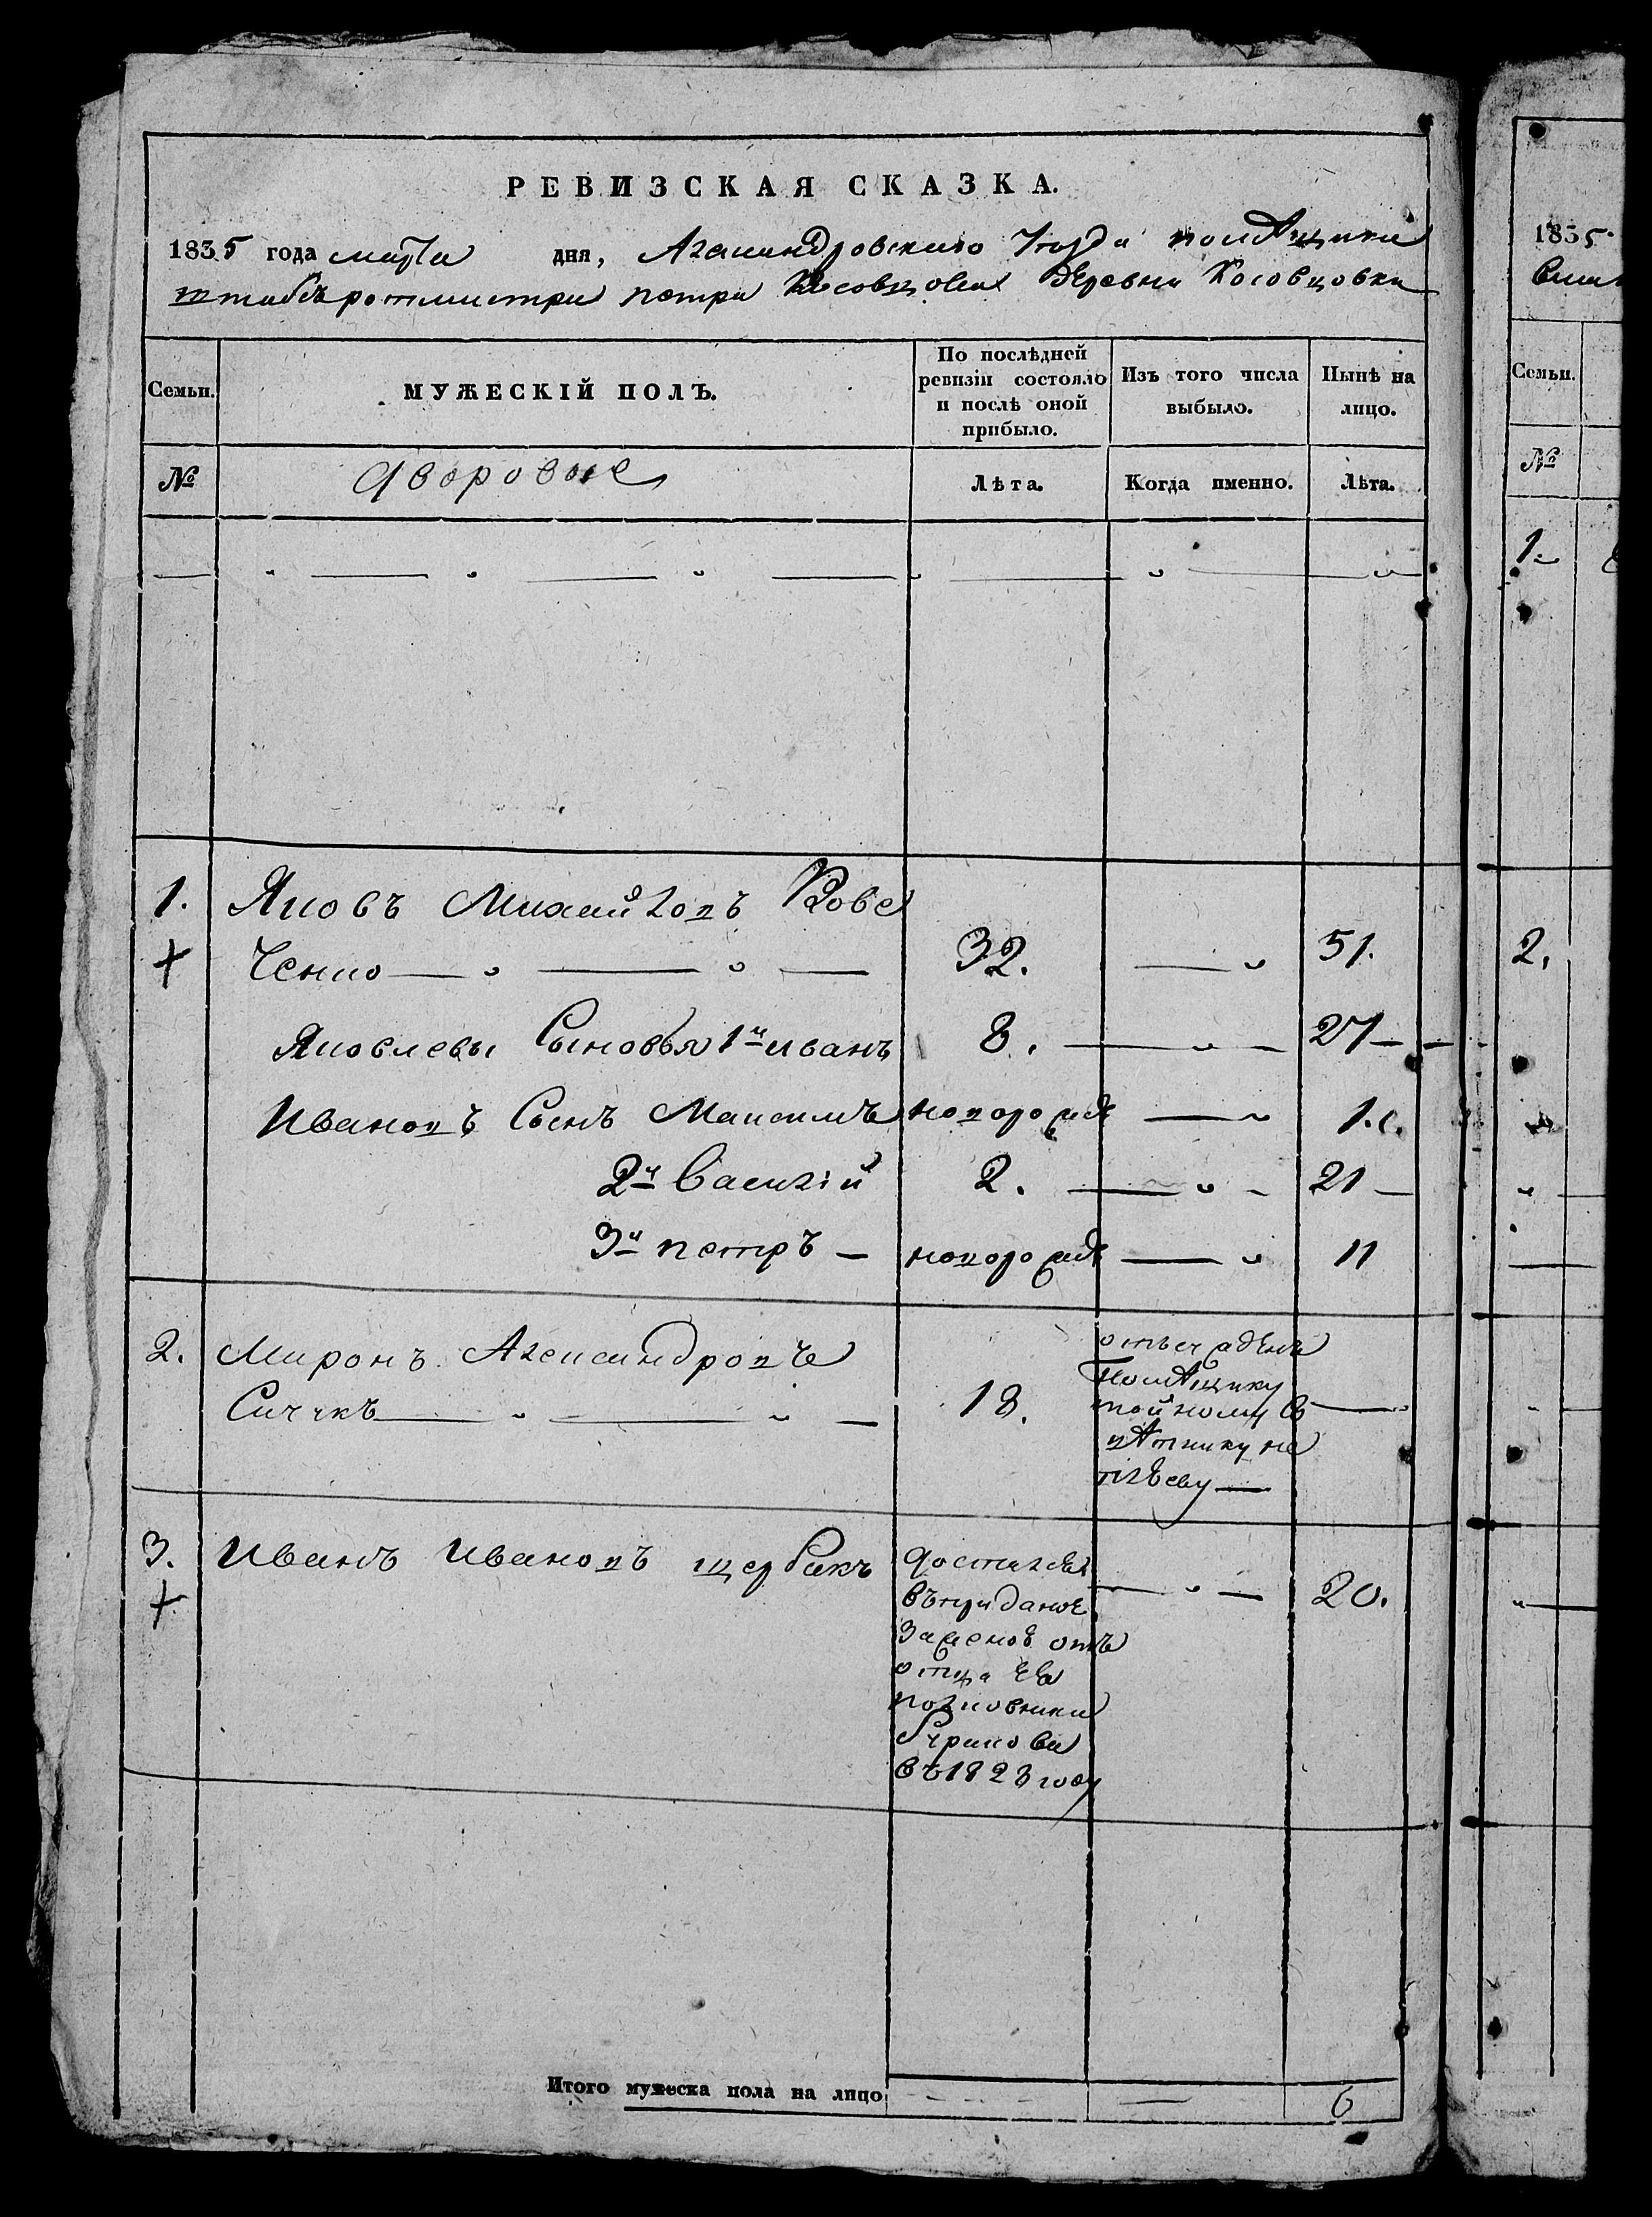 РЕВИЗСКАЯ СКАЗКА.
1835 года марта дня, Александровскаго уезда помѣщика
штабсъ ротмистра петра Косовцова деревни Косовцовки
Семьи.
МУЖЕСКІЙ ПОЛЪ.
По послѣдней ревизіи состояло и послѣ оной прибыло.
Изъ того числа выбыло.
Нынѣ на лицо.
№
дворовые
Лѣта.
Когда именно.
Лѣта.
1. Яковъ Михайловъ Кове
ченко 32. 51.
Яковлевы Сыновья 1й иванъ 8. 27
Ивановъ Сынъ Максимъ новорожде 1.
2й Василій 2. 21
3й петръ новорожде 11
2. Миронъ Александровъ
Сичкъ 18.
отъсужденъ
помѣщику
3. Иванъ Ивановъ щербакъ 20.
достался
въприданое
заженой отъ
отца Ея
полковника
въ1828 году
Итого мужеска пола на лицо 6
1835
Семьи.
№
1.
2.